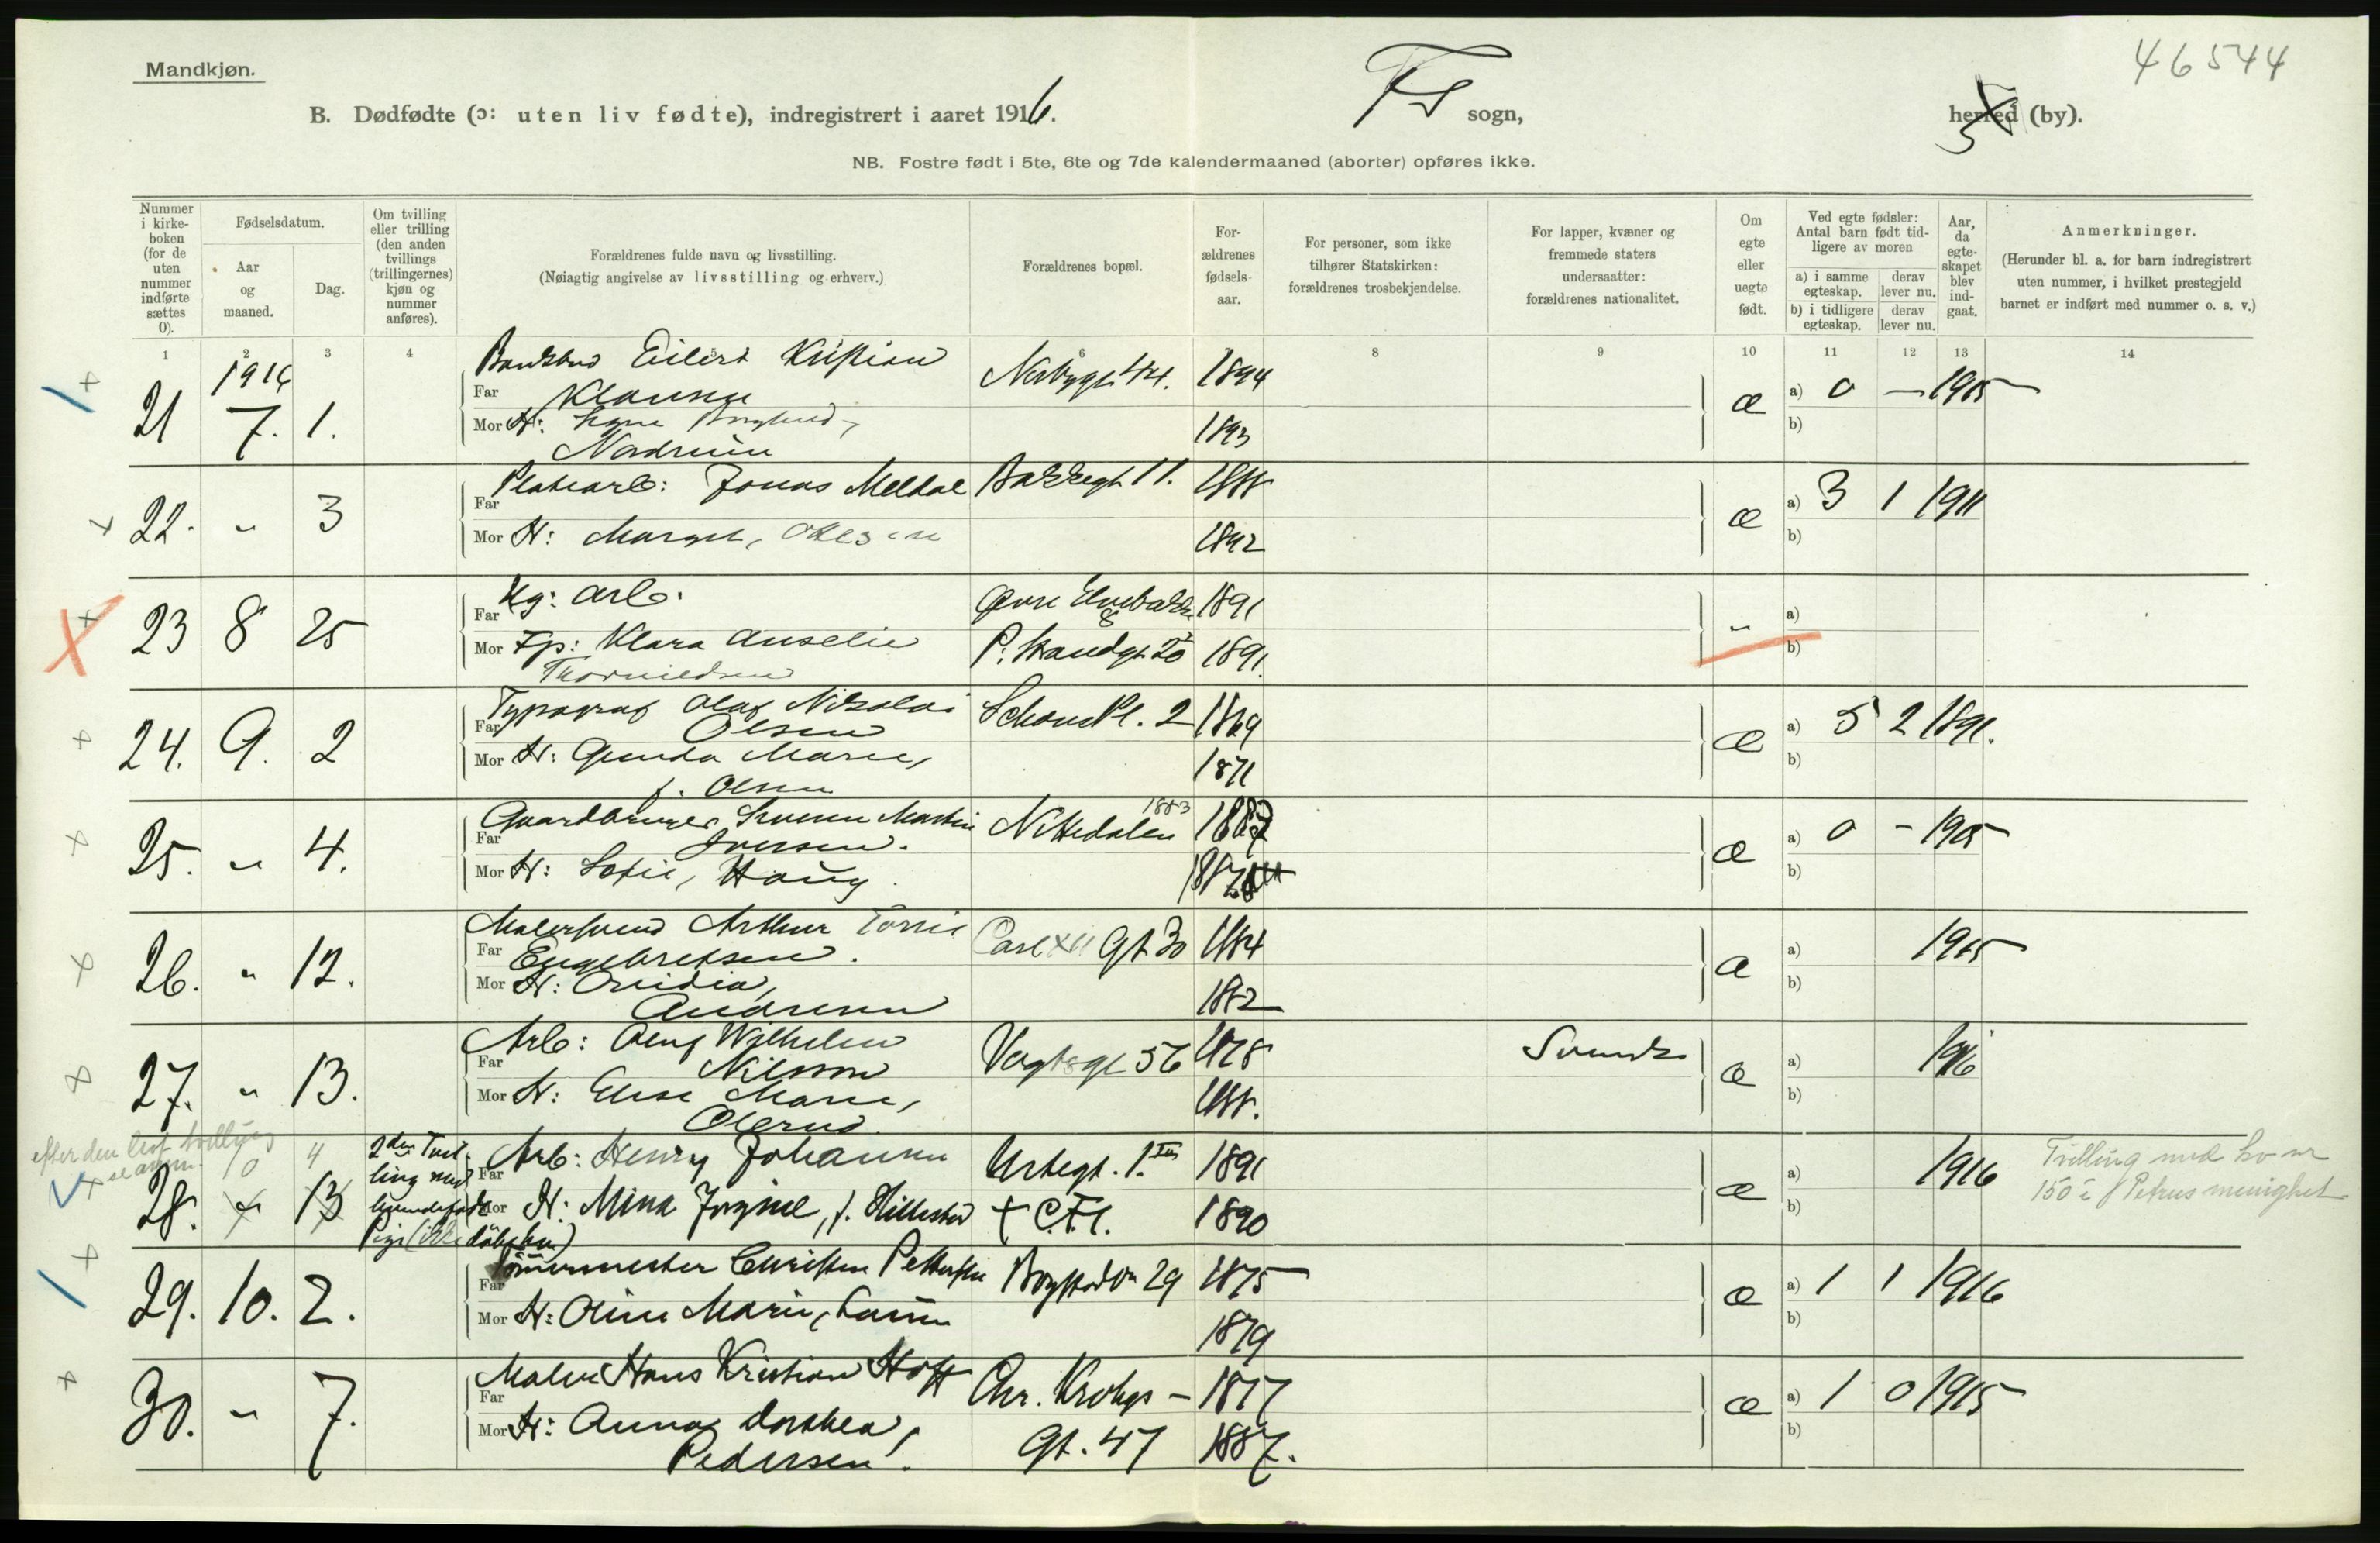 46544
Mandkjøn.
B. Dødfødte (ɔ: uten liv fødte), indregistrert i aaret 1916. Fs sogn, herred (by).
NB. Fostre født i 5te, 6te og 7de kalendermaaned (aborter) opføres ikke.
Nummer i kirkeboken (for de uten nummer indførte sættes 0).
Fødselsdatum.
Aar og maaned.
Dag.
Om tvilling eller trilling (den anden tvillings (trillingernes) kjøn og nummer anføres).
Forældrenes fulde navn og livsstilling.
(Nøiagtig angivelse av livsstilling og erhverv.)
Forældrenes bopæl.
Forældrenes fødselsaar.
For personer, som ikke tilhører Statskirken: forældrenes trosbekjendelse.
For lapper, kvæner og fremmede staters undersaatter: forældrenes nationalitet.
Om egte eller uegte født.
Ved egte fødsler: Antal barn født tidligere av moren
a) i samme egteskap. derav lever nu.
b) i tidligere egteskap. derav lever nu.
Aar, da egteskapet blev indgaat.
Anmerkninger.
(Herunder bl. a. for barn indregistrert uten nummer, i hvilket prestegjeld barnet er indført med nummer o. s. v.)
1 2 3 4 6 8 9 10 11 12 13 14
1916
21 7. 1. Far Eilert Kristian Klausen 44. 1894 æ a) 0 — 1915
Mor H: Signe b) 1893
Nordrum
22. " 3 Far Platearb: Jonas Meldal Bakkegt 11. 1888 æ a) 3 1 1911
Mor H: Margit, Olesen 1892 b)
23 8 25 Far Ug: arb. Øvre 1891 " a)
Mor Fp: Klara Anselie P. Strandgt. 20 1891. b)
24. 9. 2 Far Typograf Olaf Nikolai Olsen Schous Pl. 2 1869 æ a) 5 2 1891.
Mor H: Gunda Marie, 1871 b)
f. Olsen
25. " 4. Far Gaardbruger Martin Iversen. Nittedalen 1883 æ a) 0 - 1905
Mor H: Sofie, Haug b)
26. " 12. Far Malersvend Arthur Engebretsen. Carl XII Gt 30 1884 æ a) 1915
Mor H: Ovidia, 1882 b)
Andresen
27. " 13. Far Arb: Wilhelm Nilsson Vogtsgt 56 1878 Svensk æ a) 1916
Mor H: Elise Marie, 1888. b)
efter den levf. tvilling
10 4
28. " 13 2den Tvilling med levendefødt Pige (ikke døbt)
Far Arb: Henry Johansen Urtegt. 1. III 1891 æ a) 1916 Trilling med no nr
Mor H: Mina Jorgine, f. Hillestad + C.F.G. 1890 b) 150 i Petrus menighet
29. 10. 2. Far Tømmermester Christen Pettersen 29 1875 æ a) 1 1 1916
Mor H: Oline Marie, 1879 b)
30. " 7. Far Maler Hans Kristian Hoff Chr. Krohgs - 1877 æ a) 1 0 1915
Mor H: Anna Dorthea, Gt. 47 1887. b)
Pedersen.